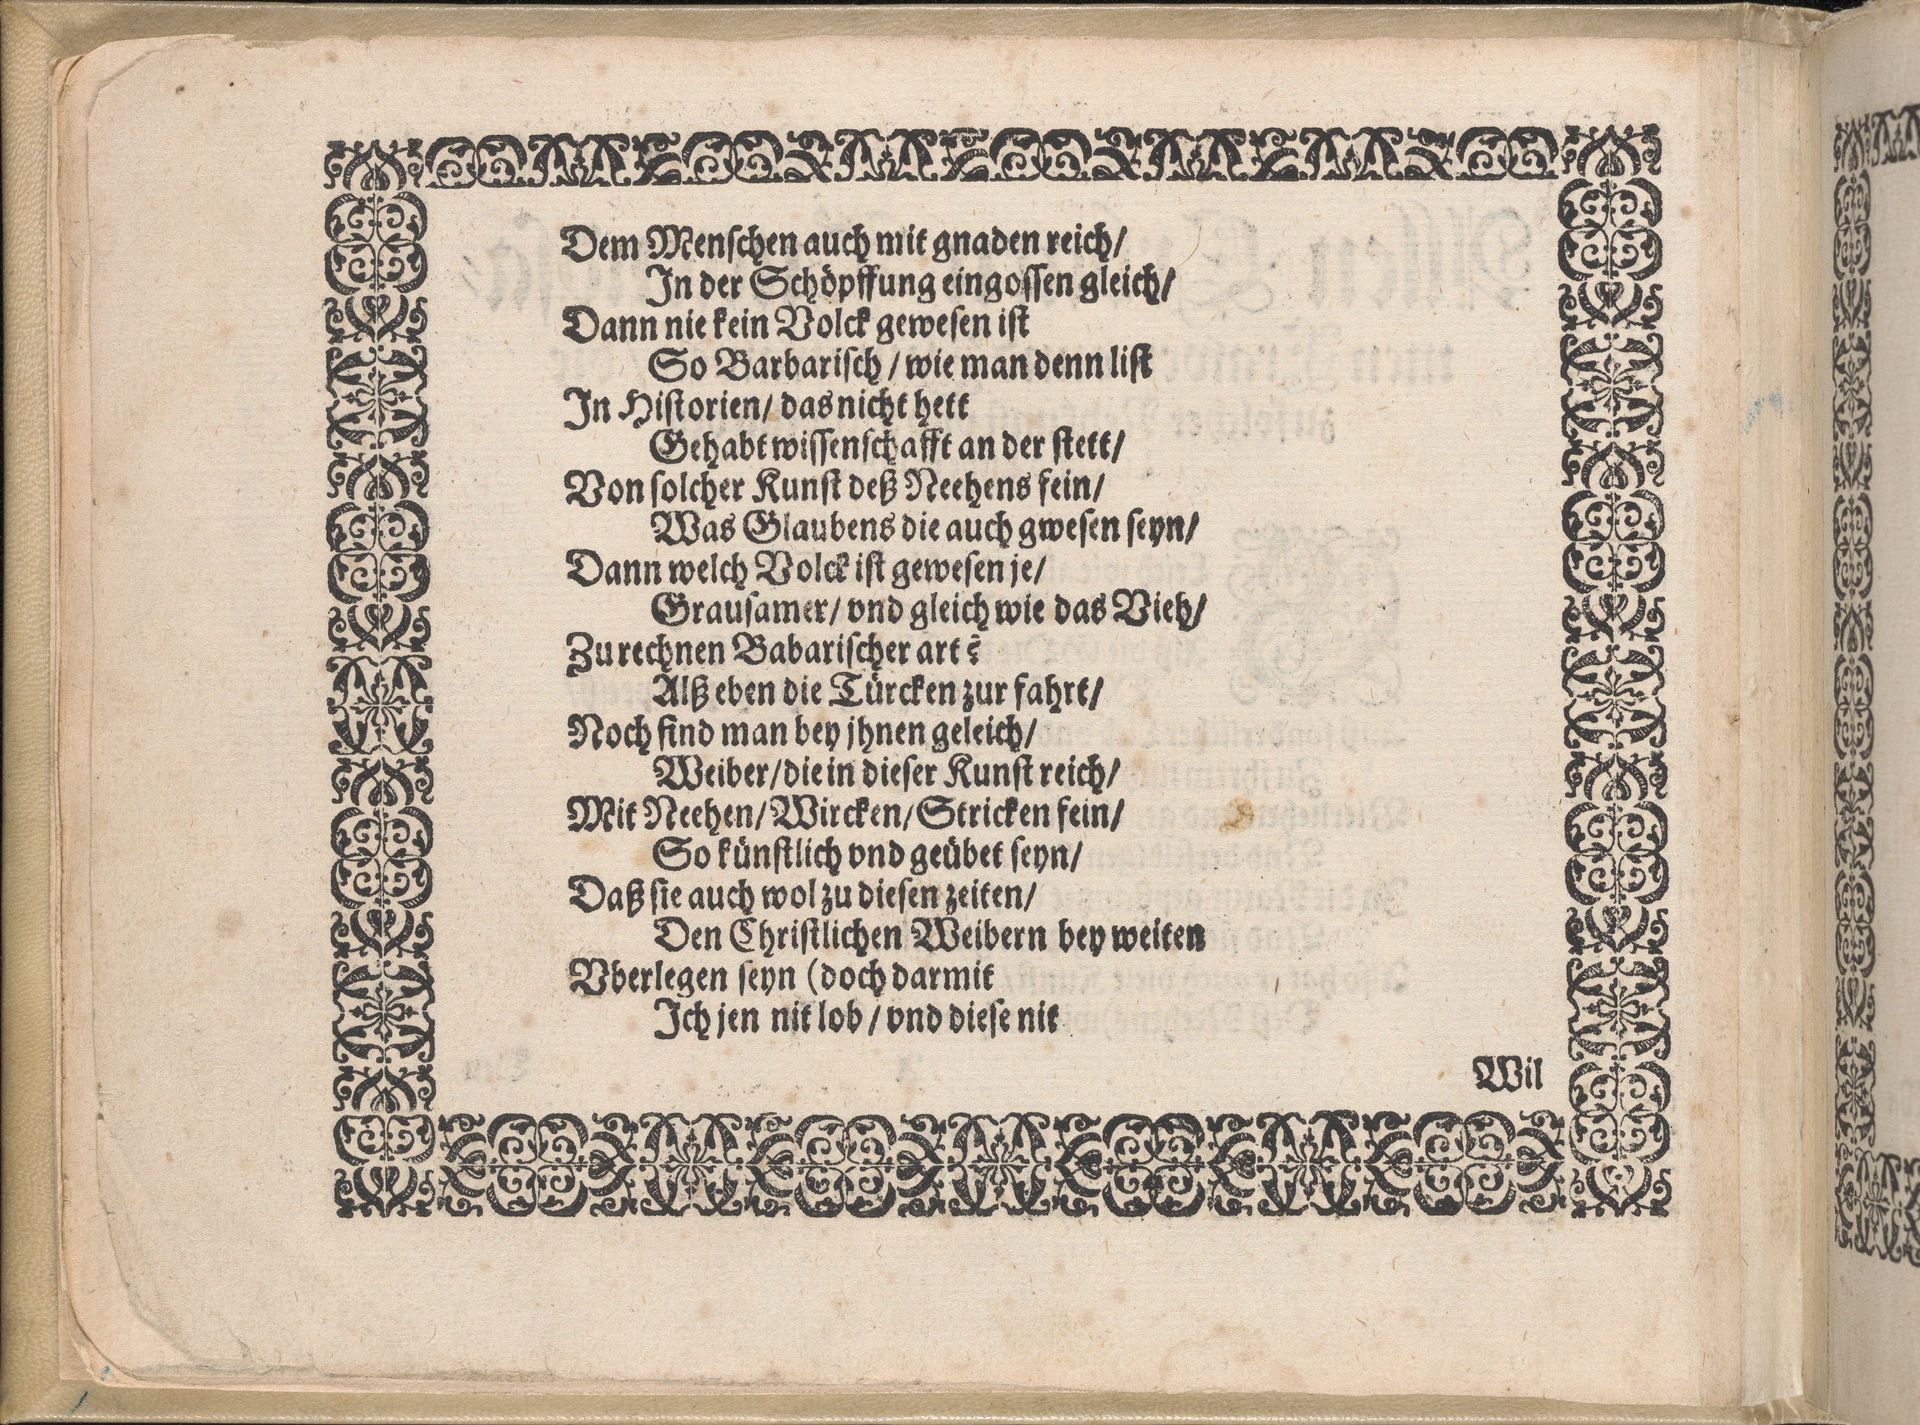 Dem Menschen auch mit gnaden reich/
In der Schöpffung eingossen gleich/
Dann nie kein Volck gewesen ist
So Barbarisch / wie man denn list
In Historien/ das nicht hett
Gehabt wissenschafft an der stett/
Von solcher Kunst deß Neehens fein/
Was Glaubens die auch gwesen seyn/
Dann welch Volck ist gewesen je/
Grausamer/ vnd gleich wie das Vieh/
Zu rechnen Babarischer art?
Alß eben die Türcken zur fahrt/
Noch find man bey jhnen geleich/
Weiber/ die in dieser Kunst reich/
Mit Neehen/ Wircken/ Stricken fein/
So künstlich vnd geübet seyn/
Daß sie auch wol zu diesen zeiten/
Den Christlichen Weibern bey weiten
Vberlegen seyn (doch darmit
Ich jen nit lob / vnd diese nit
Wil